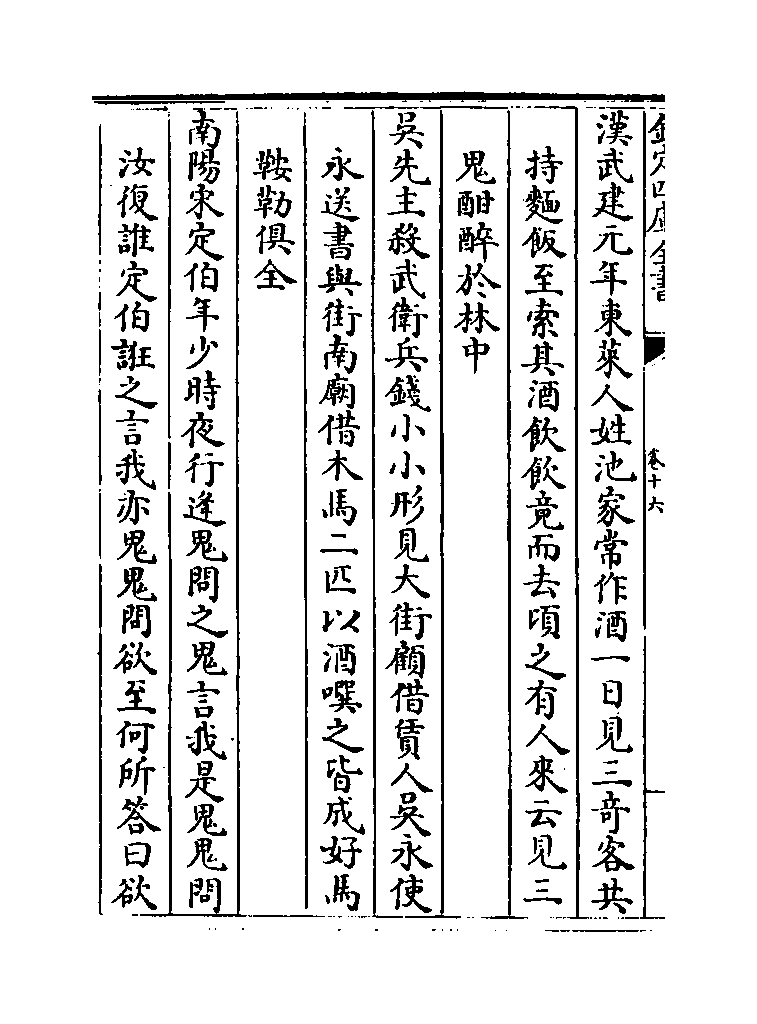 欽定四庫全書
卷十六
漢武建元年東萊人姓池家常作酒一日見三奇客共
持麵飯至索其酒飲飲竟而去頃之有人來云見三
鬼酣醉於林中
吳先主殺武衛兵錢小小形見大街顧借賃人吳永使
永送書與街南廟借木馬二匹以酒噀之皆成好馬
鞍勒俱全
南陽宋定伯年少時夜行逢鬼問之鬼言我是鬼鬼問
汝復誰定伯誑之言我亦鬼鬼問欲至何所答曰欲